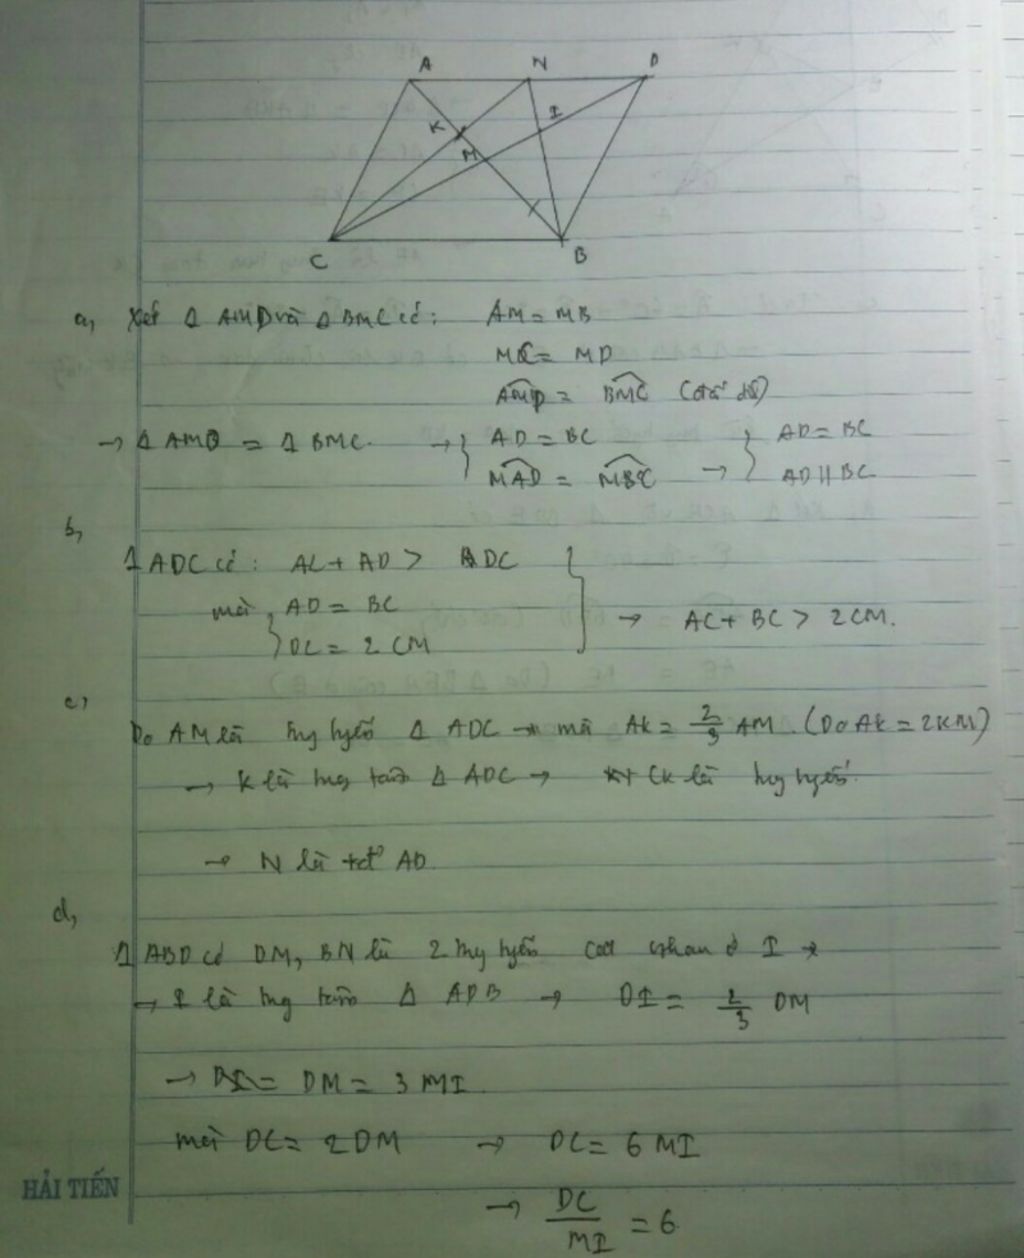 A N D
K I
M
C B
a, Xét Δ AMD và Δ BMC có: AM = MB
MC = MD
AMD = BMC (đối đỉ)
→ Δ AMD = Δ BMC → { AD = BC → { AD = BC
MAD = MBC AD || BC
b,
Δ ADC có: AC + AD > DC
mà { AD = BC → AC + BC > 2CM.
DC = 2 CM
c,
Do AM là trung tuyến Δ ADC → mà AK = 2/3 AM. (Do AK = 2KM)
→ K là trọng tâm Δ ADC → CK là trung tuyến.
→ N là tđ AD
d,
Δ ABD có DM, BN là 2 trung tuyến cắt nhau ở I →
→ I là trọng tâm Δ ADB → DI = 2/3 DM
→ DM = 3 MI
mà DC = 2DM → DC = 6 MI
→ DC/MI = 6
HẢI TIẾN